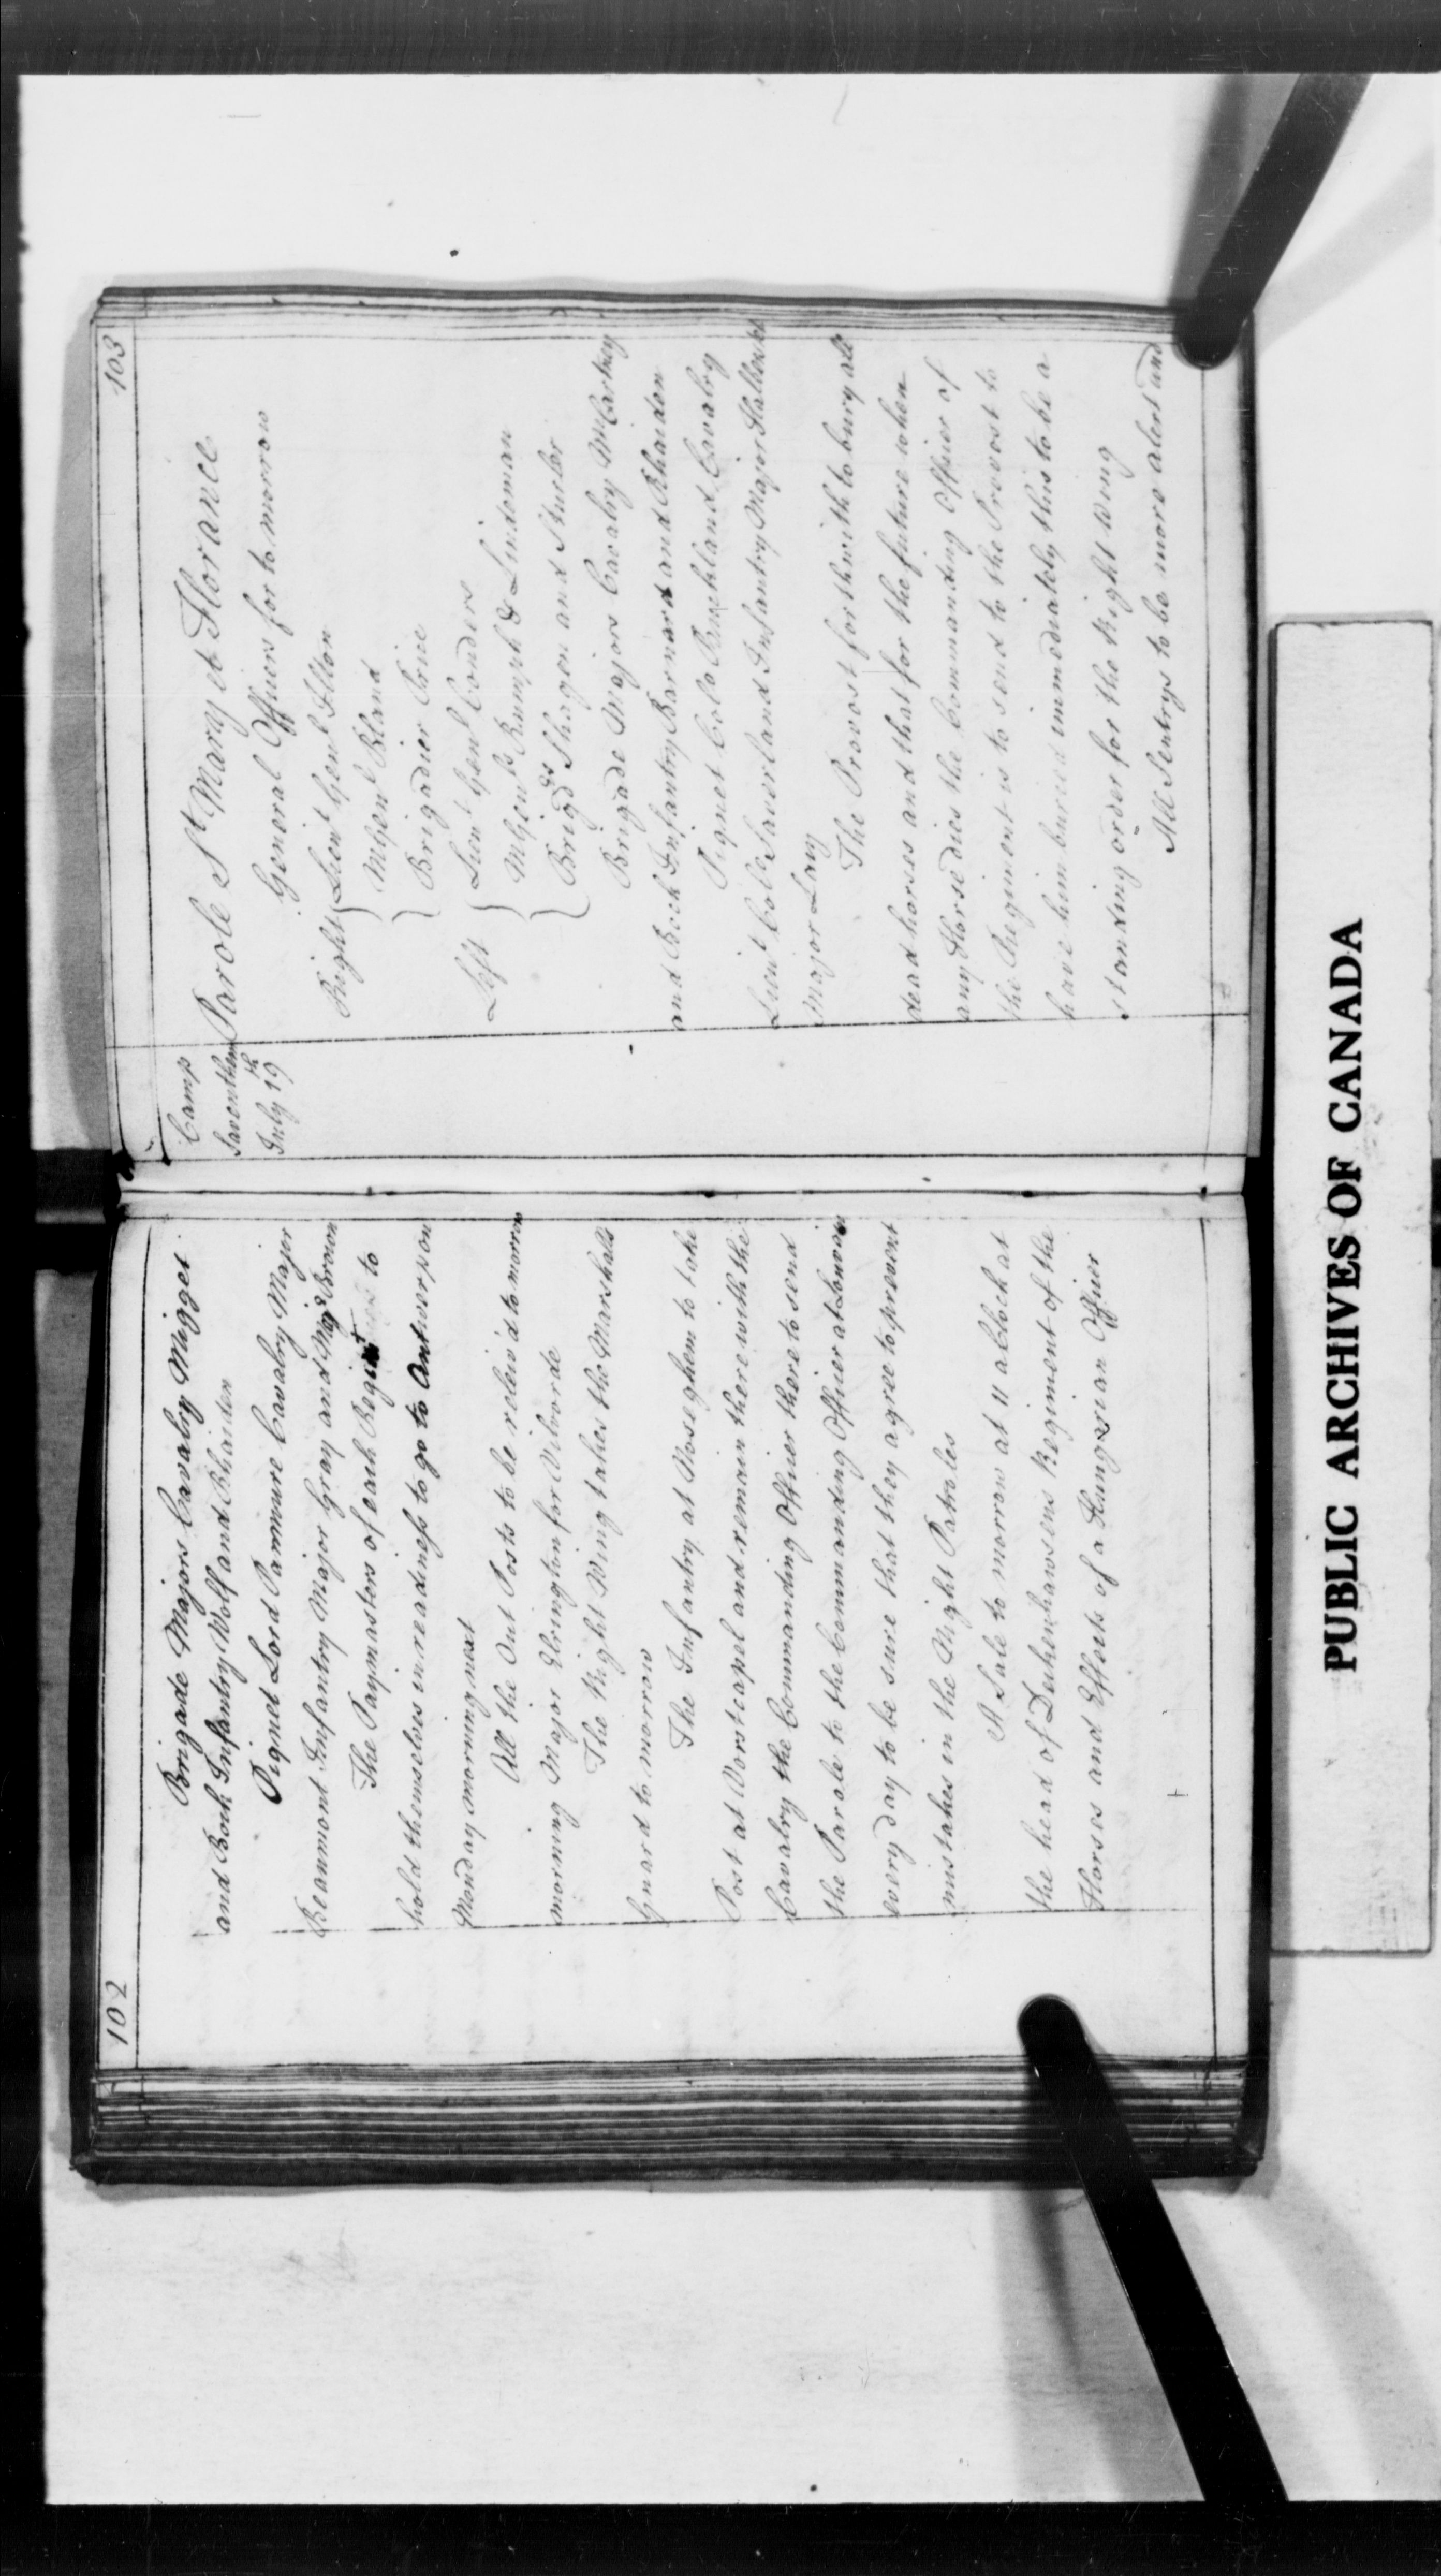 102
Brigade Majors Cavalry Migget
and Bock Infantry Wolf and Rhaiden
Piquet Lord Panmure Cavalry Major
Beaumont Infantry Major Gray and Majr Brown
The Paymasters of each Regimt to
hold themselves in readiness to go to Antwerp on
Monday morning next
All the Out Posts to be releiv'd to morrow
morning Major Elrington for Vilvorde
The Right Wing takes the Marshalls
Guard to morrow
The Infantry at Noseghem to take
Post at Vorsticapel and remain there with the
Cavalry the Commanding Officer there to send
the Parole to the Commanding Officer at
every day to be sure that they agree to prevent
mistakes in the Night Patroles
A Sale to morrow at 11 a Clock at
the head of Druhenhawsens Regiment of the
Horses and Effects of a Hungarian Officer
103
Camp
Saventhem
July 19th
Parole St Mary et Florance
General Officers for to morrow
Right { Lieut Genl Ilton
{ M Genl Bland
{ Brigadier Price
Left { Lieut Genl Coenders
{ M Genls Rumph & Lindeman
{ Brigdrs Shagen and Stucler
Brigade Majors Cavalry McCartney
and Bock Infantry Barnard and Rhaiden
Piquet Colo Buckland Cavalry
Lieut Colo Saverland Infantry Major
Major Lacy
The Provost forthwith to bury all
dead horses and that for the future when
any Horse dies the Commanding Officer of
the Regiment is to send to the Provost to
have him buried immediately this to be a
standing order for the Right Wing
All Sentrys to be more alert and
PUBLIC ARCHIVES OF CANADA